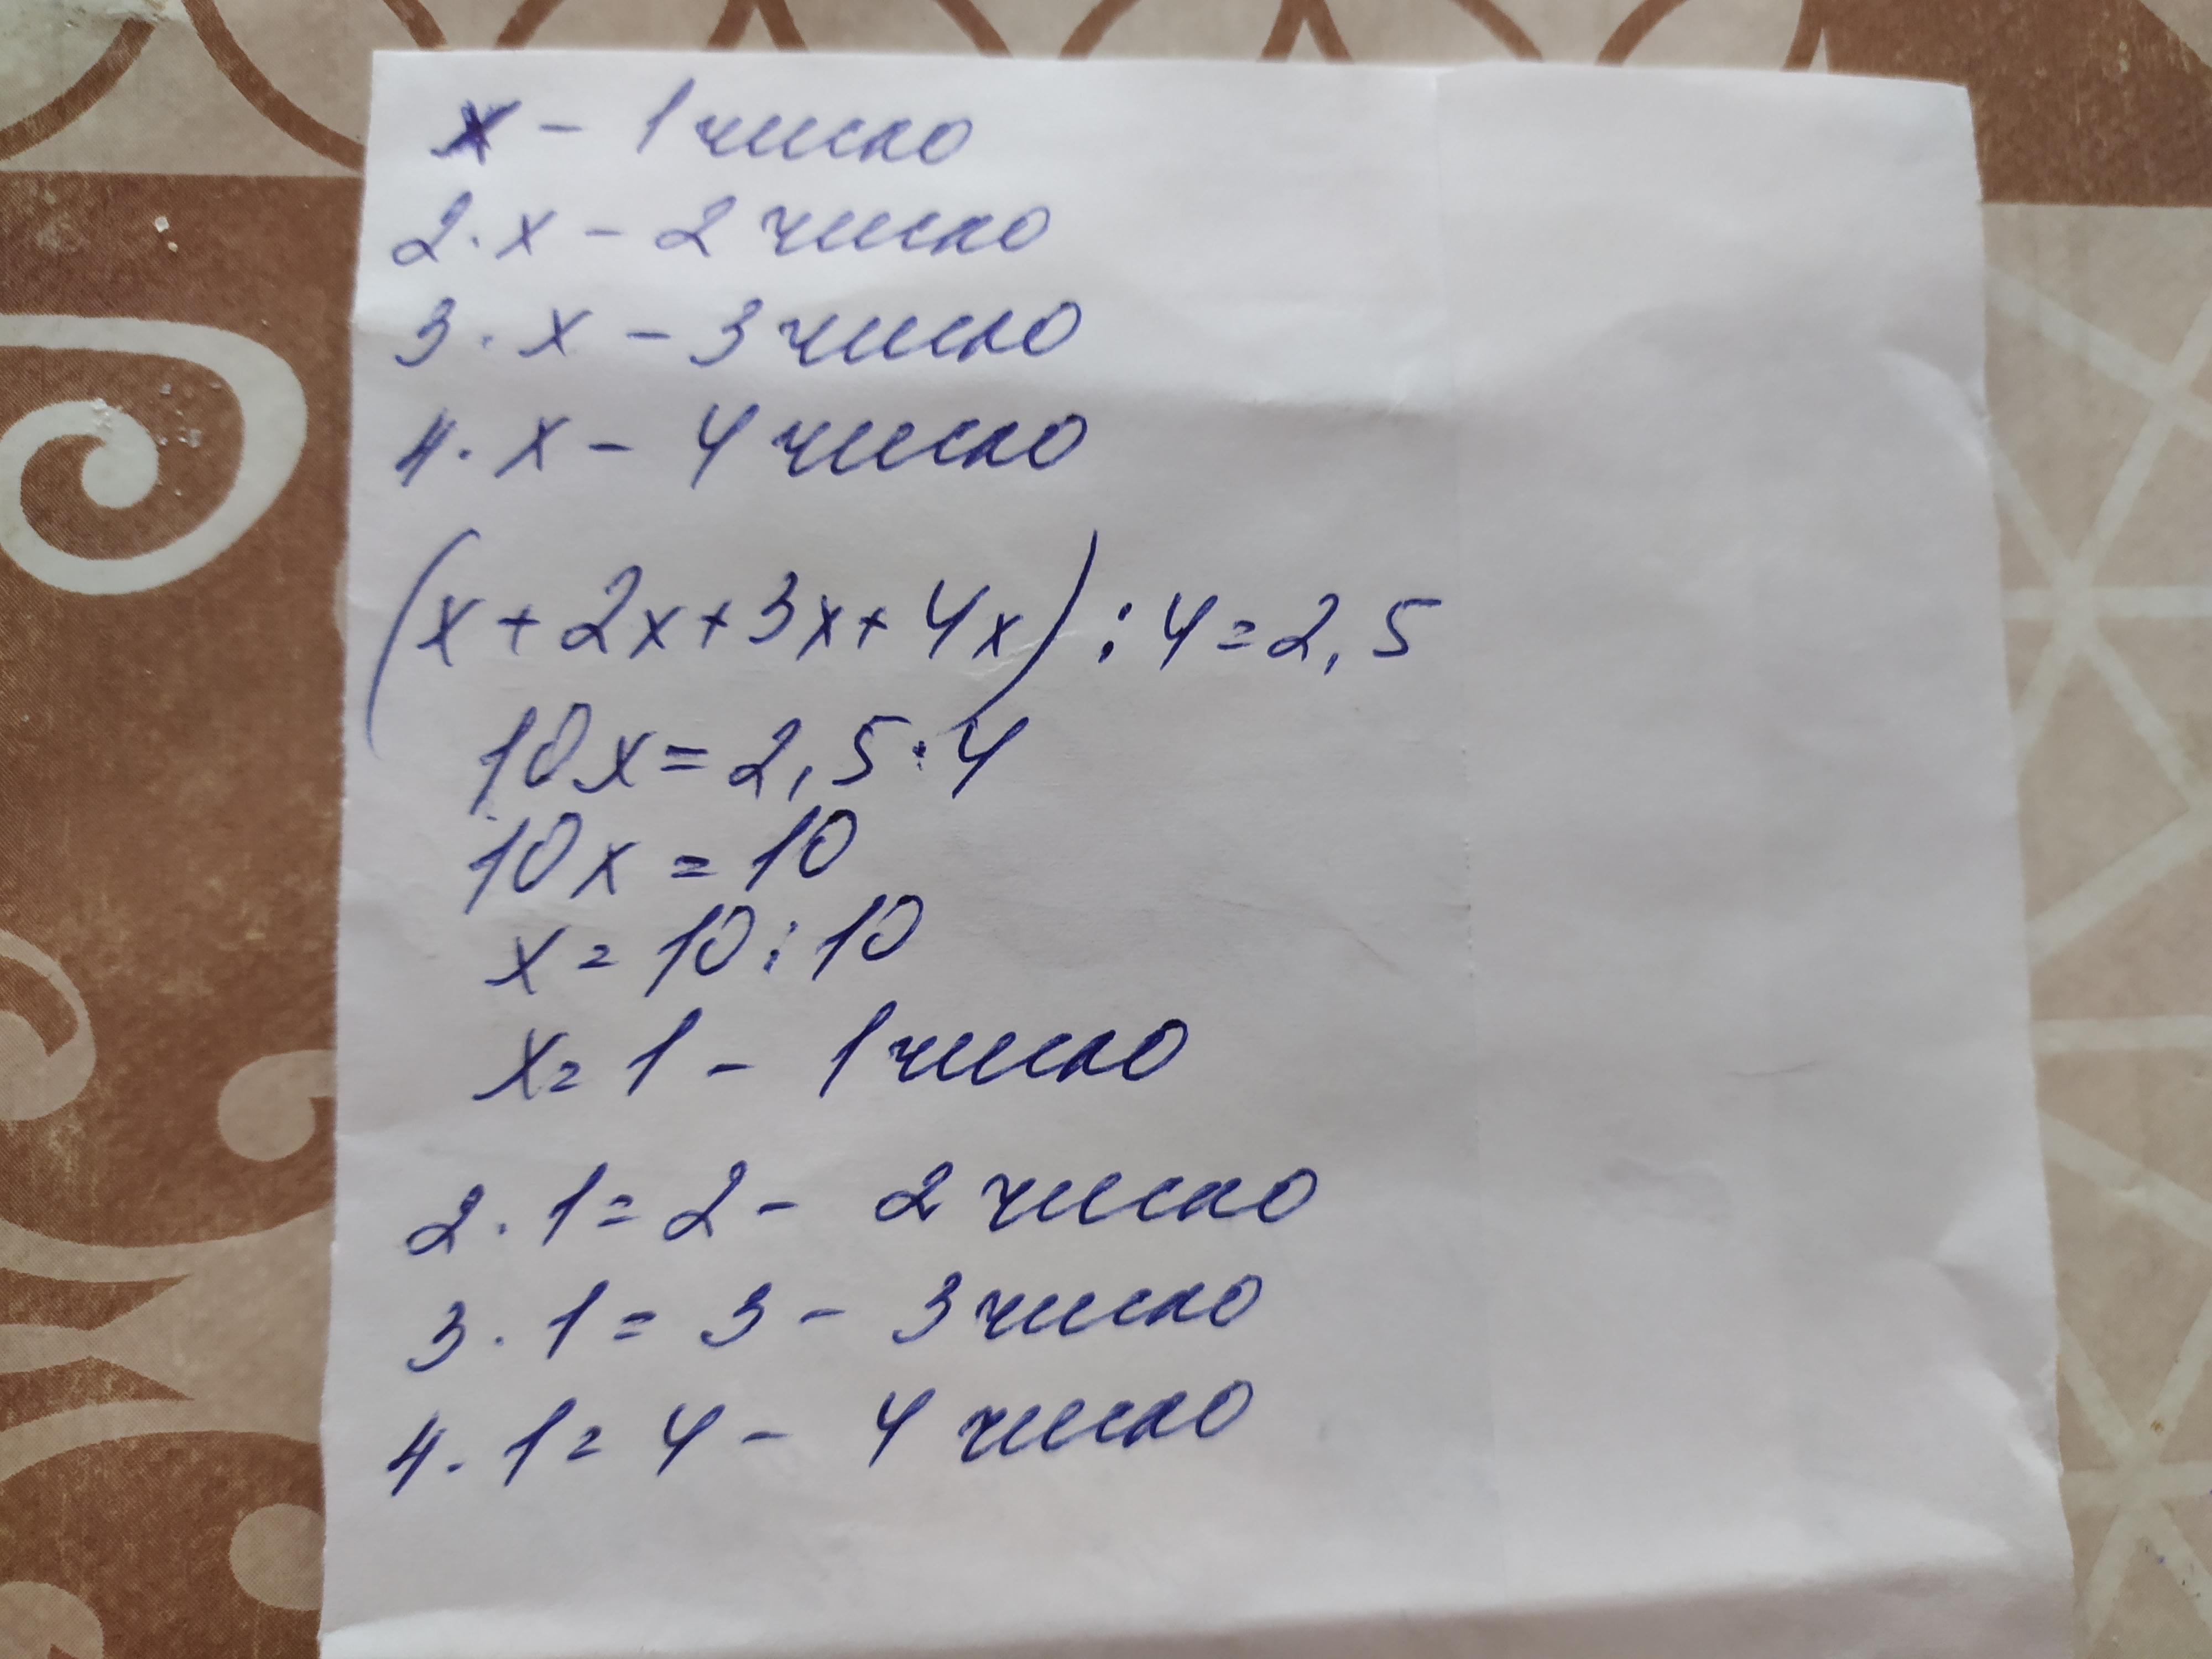 x - 1 число
2·x - 2 число
3·x - 3 число
4·x - 4 число
(x+2x+3x+4x):4=2,5
10x=2,5·4
10x=10
x=10:10
x=1 - 1 число
2·1=2 - 2 число
3·1=3 - 3 число
4·1=4 - 4 число